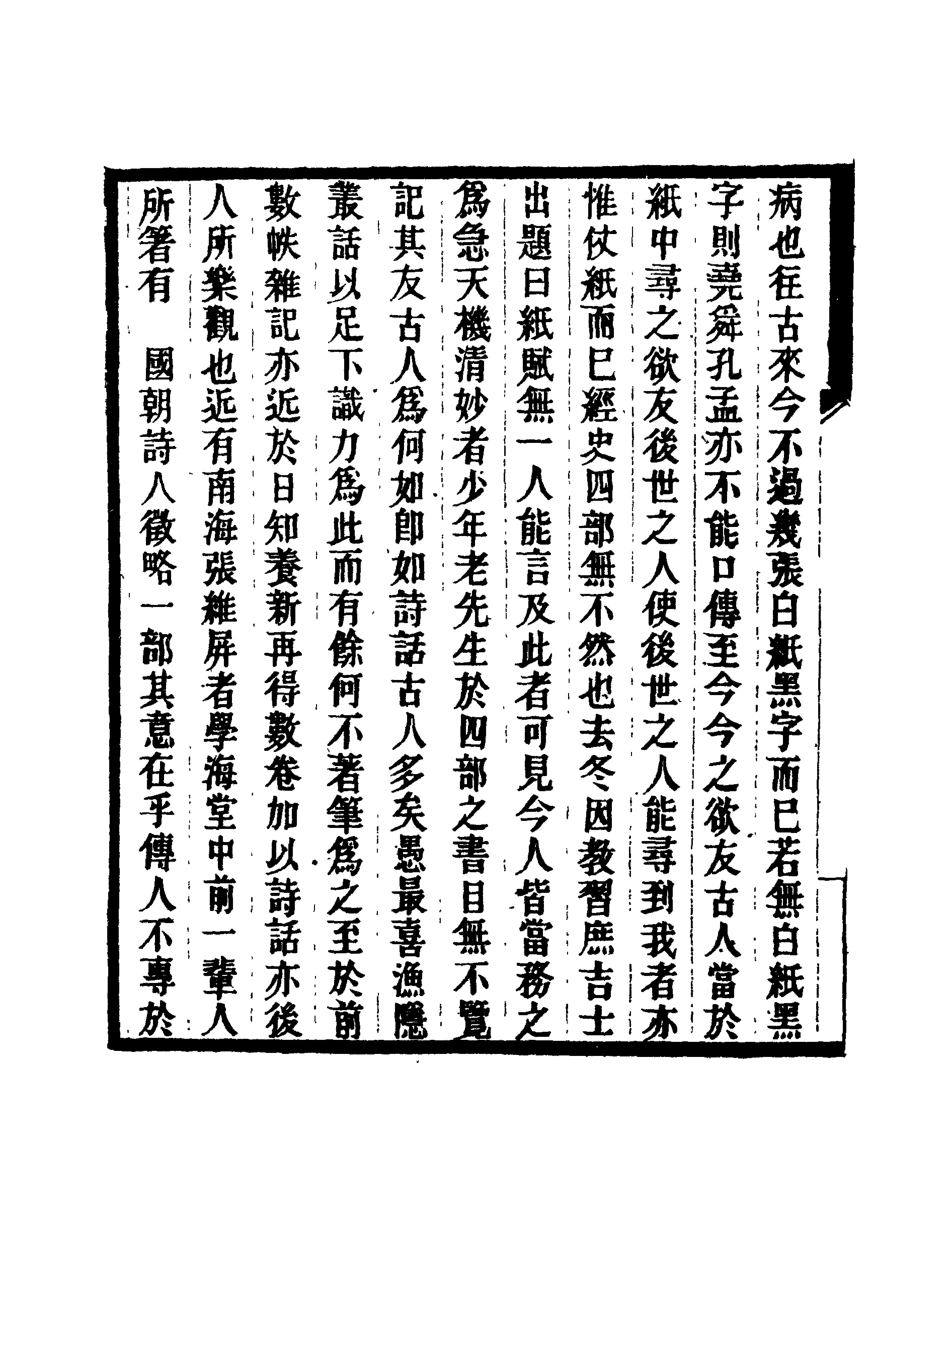 病也往古來今不過幾張白紙黑字而已若無白紙黑
字則堯舜孔孟亦不能口傳至今今之欲友古人當於
紙中尋之欲友後世之人使後世之人能尋到我者亦
惟仗紙而已經史四部無不然也去冬因教習庶吉士
出題曰紙賦無一人能言及此者可見今人皆當務之
爲急天機清妙者少年老先生於四部之書目無不覽
記其友古人爲何如卽如詩話古人多矣愚最喜漁隱
叢話以足下識力爲此而有餘何不著筆爲之至於前
數帙雜記亦近於日知養新再得數卷加以詩話亦後
人所樂觀也近有南海張維屏者學海堂中前一輩人
所箸有　國朝詩人徵略一部其意在乎傳人不專於